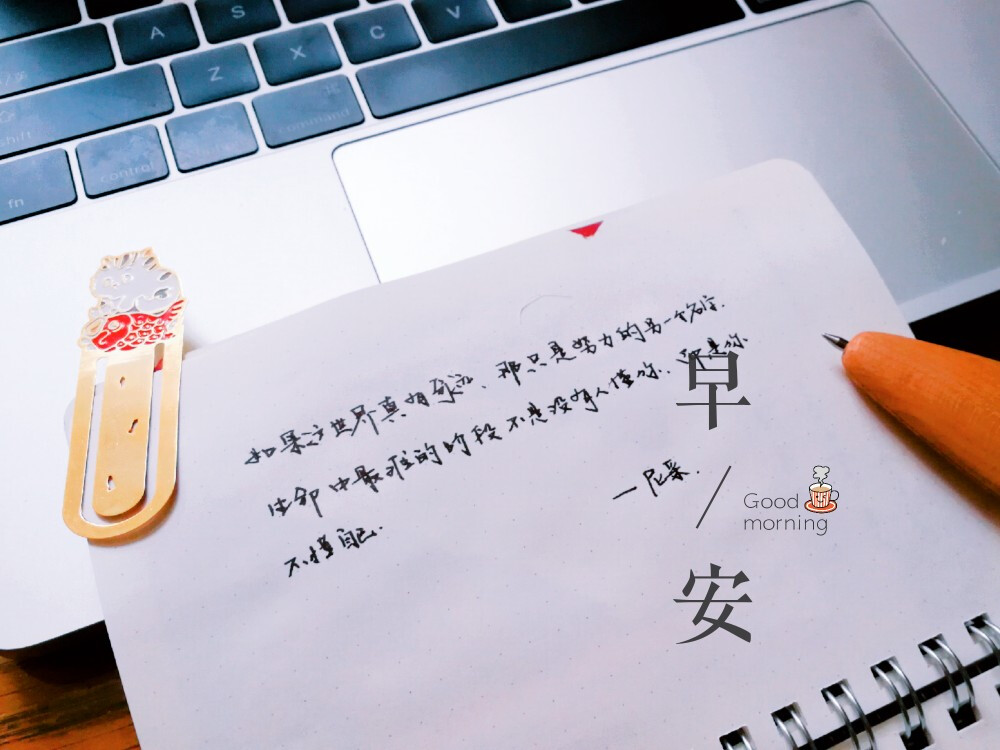 A
S
Z
X
C
V
shift
command
control
fn
如果这世界真有奇迹、那只是努力的另一个名字.
生命中最难的阶段不是没有人懂你.而是你
不懂自己.
—尼采.
早
/
Good
morning
安